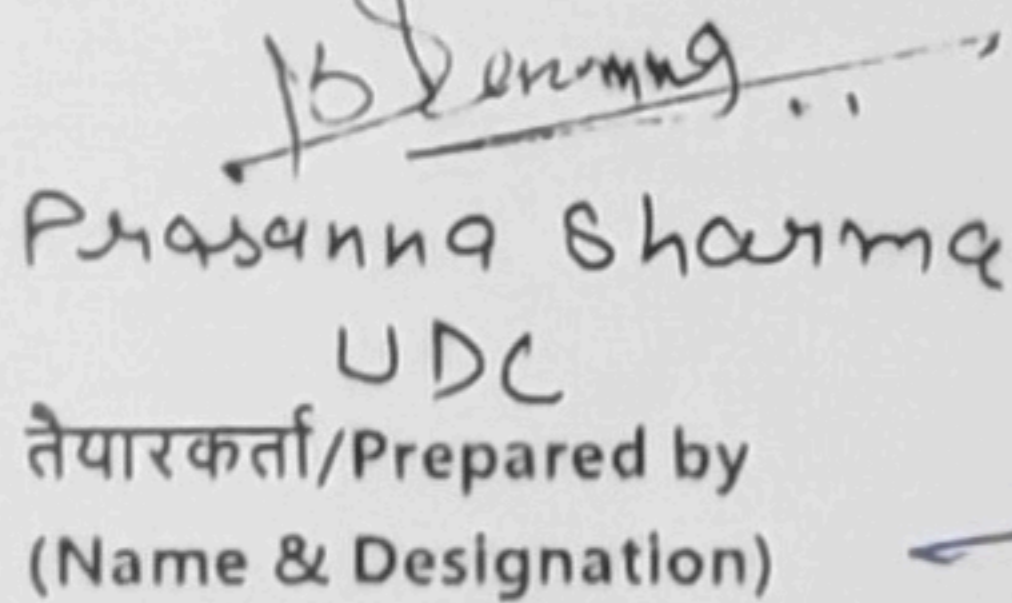 Prasanna Sharma
UDC
तैयारकर्ता/Prepared by
(Name & Designation)